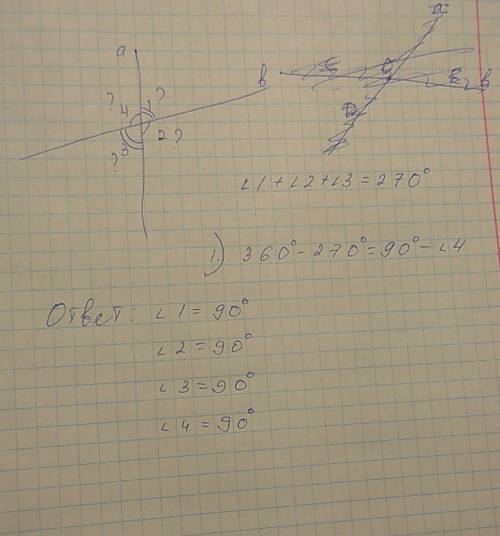 a
b
? 4 1 ?
3 2 ?
?
∠1 + ∠2 + ∠3 = 270°
1.) 360° - 270° = 90° - ∠4
Ответ: ∠1 = 90°
∠2 = 90°
∠3 = 90°
∠4 = 90°